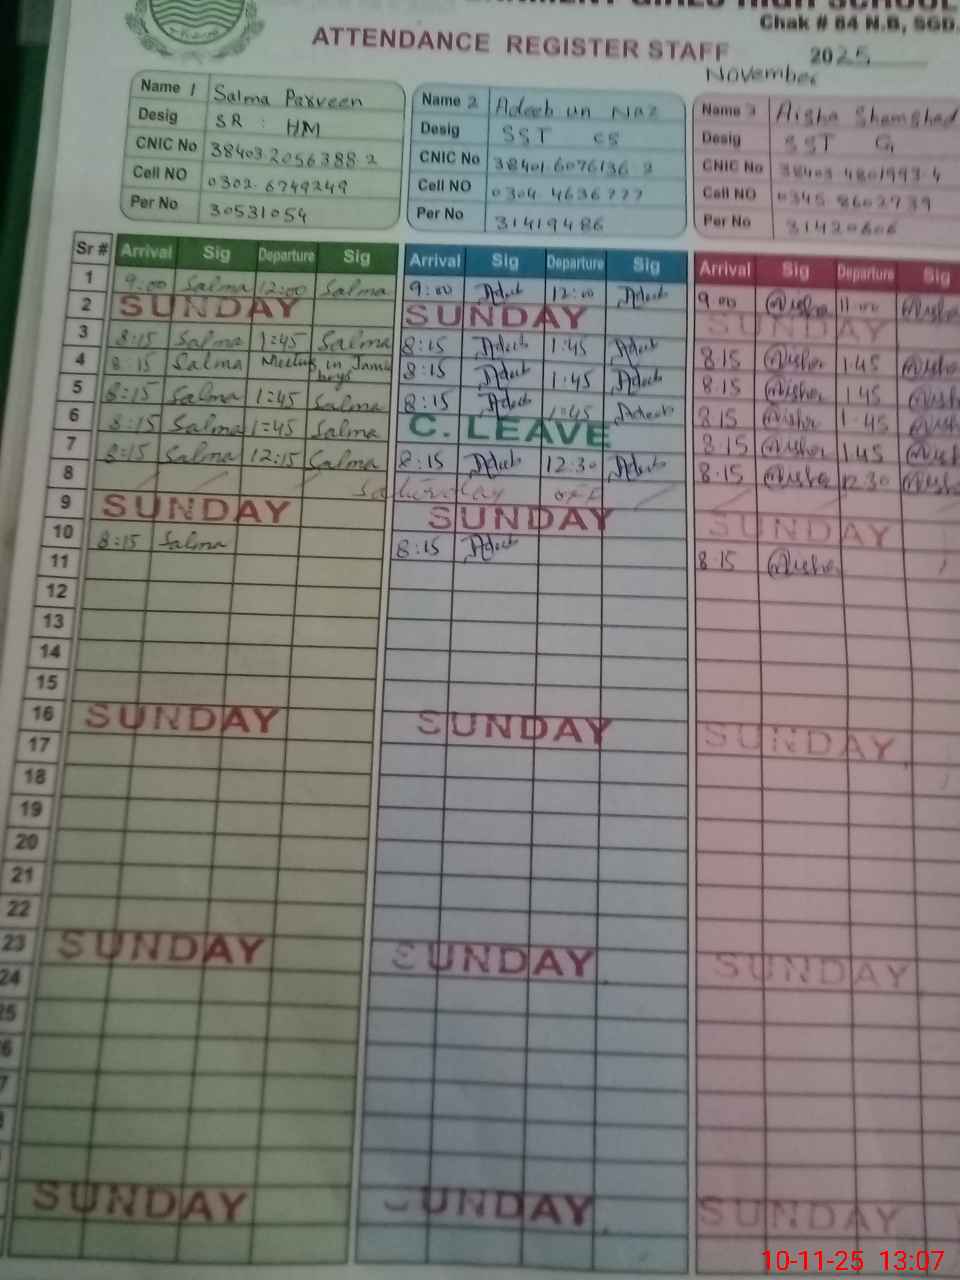 GIRLS HIGH SCHOOL
Chak # 84 N.B, SGD.
ATTENDANCE REGISTER STAFF 2025
November
Name 1 Salma Parveen
Desig SR : HM
CNIC No 38403 2056388 2
Cell NO 0302 6749249
Per No 30531054
Name 2 Adeeb un Naz
Desig SST CS
CNIC No 38401 6076136 2
Cell NO 0304 4636777
Per No 31419486
Name 3 Aisha Shamshad
Desig SST G
CNIC No 38403 4801993 4
Cell NO 0345 8602739
Per No 31420606
Sr # Arrival Sig Departure Sig Arrival Sig Departure Sig Arrival Sig Departure Sig
1 9:00 Salma 12:00 Salma 9:00 Adeeb 12:00 Adeeb 9 00 Aisha 11:00 Aisha
2 SUNDAY SUNDAY SUNDAY
3 8:15 Salma 1:45 Salma 8:15 Adeeb 1:45 Adeeb 8 15 Aisha 1 45 Aisha
4 8:15 Salma Meeting in Jamia boys 8:15 Adeeb 1:45 Adeeb 8 15 Aisha 1 45 Aisha
5 8:15 Salma 1:45 Salma 8:15 Adeeb 1:45 Adeeb 8 15 Aisha 1 45 Aisha
6 8:15 Salma 1:45 Salma C. LEAVE 8 15 Aisha 1 45 Aisha
7 8:15 Salma 12:15 Salma 8:15 Adeeb 12:30 Adeeb 8 15 Aisha 12 30 Aisha
8 Saturday OFF
9 SUNDAY SUNDAY SUNDAY
10 8:15 Salma 8:15 Adeeb 8 15 Aisha
11
12
13
14
15
16 SUNDAY SUNDAY SUNDAY
17
18
19
20
21
22
23 SUNDAY SUNDAY SUNDAY
24
25
SUNDAY SUNDAY SUNDAY
10-11-25 13:07